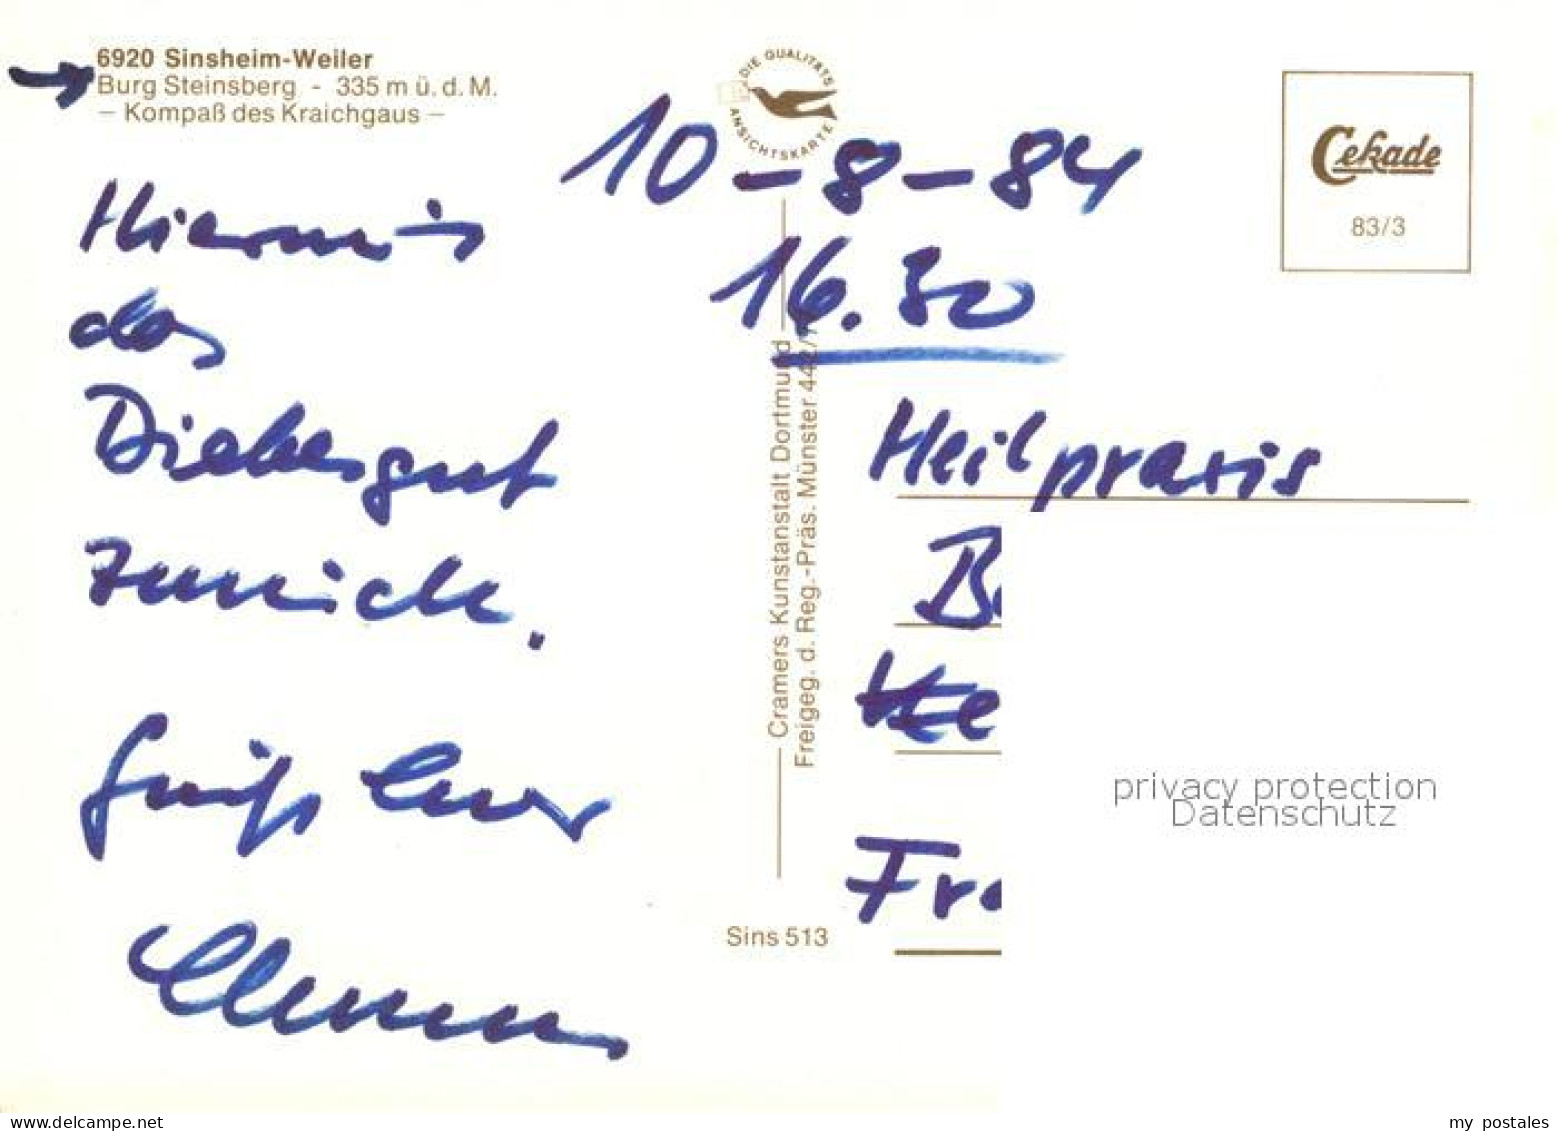 6920 Sinsheim-Weiler
Burg Steinsberg - 335 m ü. d. M.
– Kompaß des Kraichgaus –
DIE QUALITÄTS
ANSICHTSKARTE
Cekade
83/3
10-8-84
16.30
Hiermit
das
Diebesgut
zurück.
Gruß
Cramers Kunstanstalt Dortmund
Freigeg. d. Reg.-Präs. Münster
Sins 513
Heilpraxis
privacy protection
Datenschutz
my postales